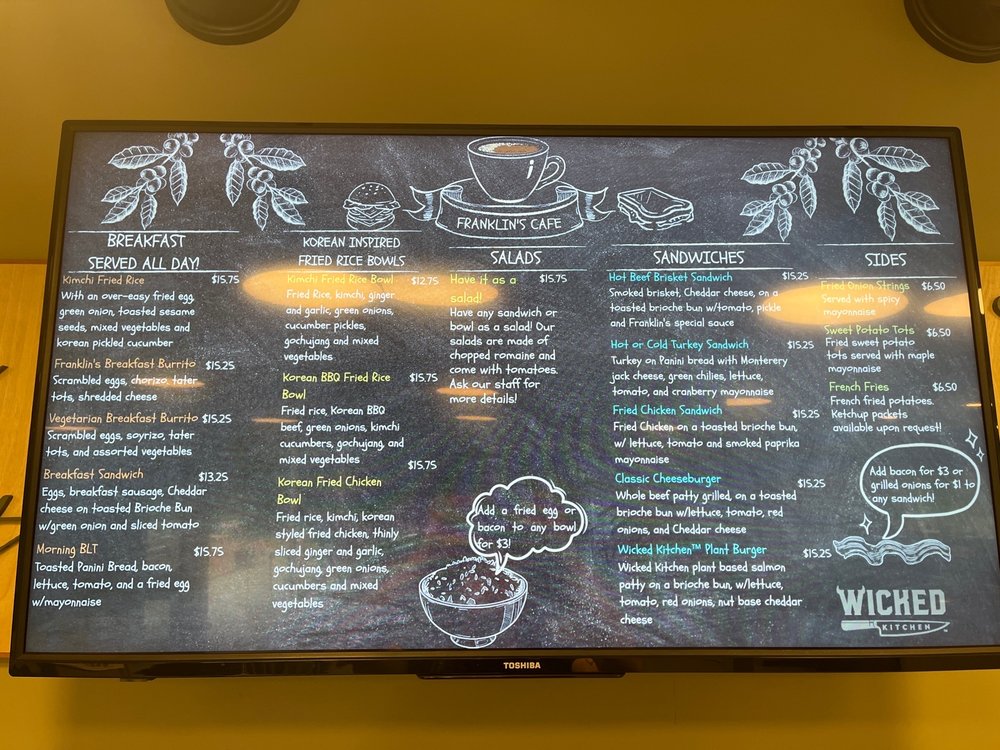 FRANKLIN'S CAFE
BREAKFAST
SERVED ALL DAY!
Kimchi Fried Rice $15.75
With an over-easy fried egg,
green onion, toasted sesame
seeds, mixed vegetables and
korean pickled cucumber
Franklin's Breakfast Burrito $15.25
Scrambled eggs, chorizo, tater
tots, shredded cheese
Vegetarian Breakfast Burrito $15.25
Scrambled eggs, soyrizo, tater
tots, and assorted vegetables
Breakfast Sandwich $13.25
Eggs, breakfast sausage, Cheddar
cheese on toasted Brioche Bun
w/green onion and sliced tomato
Morning BLT $15.75
Toasted Panini Bread, bacon,
lettuce, tomato, and a fried egg
w/mayonnaise
KOREAN INSPIRED
FRIED RICE BOWLS
Kimchi Fried Rice Bowl $12.75
Fried Rice, kimchi, ginger
and garlic, green onions,
cucumber pickles,
gochujang and mixed
vegetables
Korean BBQ Fried Rice $15.75
Bowl
Fried rice, Korean BBQ
beef, green onions, kimchi
cucumbers, gochujang, and
mixed vegetables
$15.75
Korean Fried Chicken
Bowl
Fried rice, kimchi, korean
styled fried chicken, thinly
sliced ginger and garlic,
gochujang, green onions,
cucumbers and mixed
vegetables
SALADS
Have it as a $15.75
salad!
Have any sandwich or
bowl as a salad! Our
salads are made of
chopped romaine and
come with tomatoes.
Ask our staff for
more details!
Add a fried egg or
bacon to any bowl
for $3!
SANDWICHES
Hot Beef Brisket Sandwich $15.25
Smoked brisket, Cheddar cheese, on a
toasted brioche bun w/tomato, pickle
and Franklin's special sauce
Hot or Cold Turkey Sandwich $15.25
Turkey on Panini bread with Monterery
jack cheese, green chilies, lettuce,
tomato, and cranberry mayonnaise
Fried Chicken Sandwich $15.25
Fried Chicken on a toasted brioche bun,
w/ lettuce, tomato and smoked paprika
mayonnaise
Classic Cheeseburger $15.25
Whole beef patty grilled, on a toasted
brioche bun w/lettuce, tomato, red
onions, and Cheddar cheese
Wicked Kitchen™ Plant Burger $15.25
Wicked Kitchen plant based salmon
patty on a brioche bun, w/lettuce,
tomato, red onions, nut base cheddar
cheese
SIDES
Fried Onion Strings $6.50
Served with spicy
mayonnaise
Sweet Potato Tots $6.50
Fried sweet potato
tots served with maple
mayonnaise
French Fries $6.50
French fried potatoes.
Ketchup packets
available upon request!
Add bacon for $3 or
grilled onions for $1 to
any sandwich!
WICKED
KITCHEN™
TOSHIBA